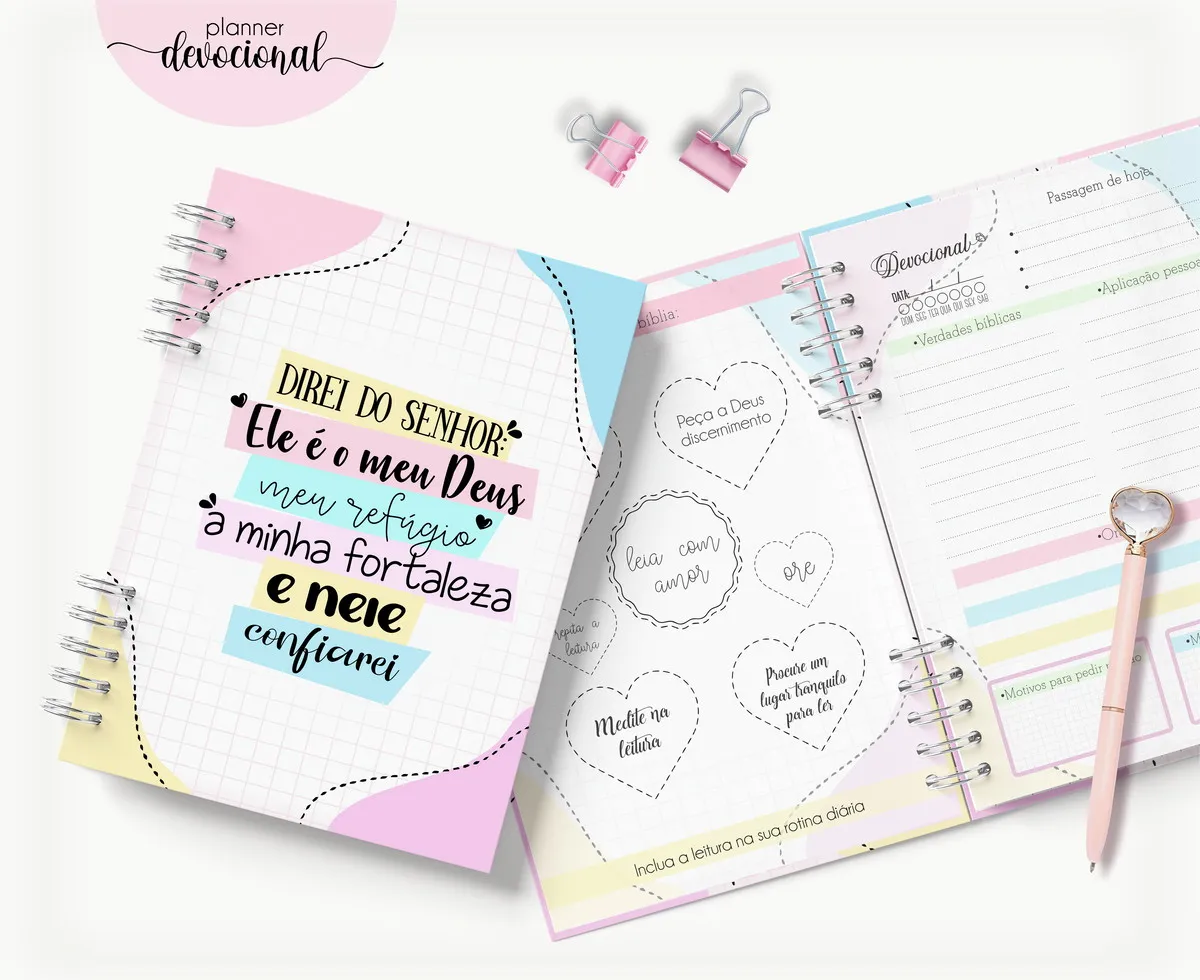 planner
devocional
DIREI DO SENHOR:
Ele é o meu Deus
meu refúgio
a minha fortaleza
e nele
confiarei
bíblia:
Peça a Deus
discernimento
leia com
amor
ore
repita a
leitura
Medite na
leitura
Procure um
lugar tranquilo
para ler
Inclua a leitura na sua rotina diária
Devocional
DATA:
DOM SEG TER QUA QUI SEX SAB
Passagem de hoje:
•Verdades bíblicas
•Aplicação
•Motivos para pedir